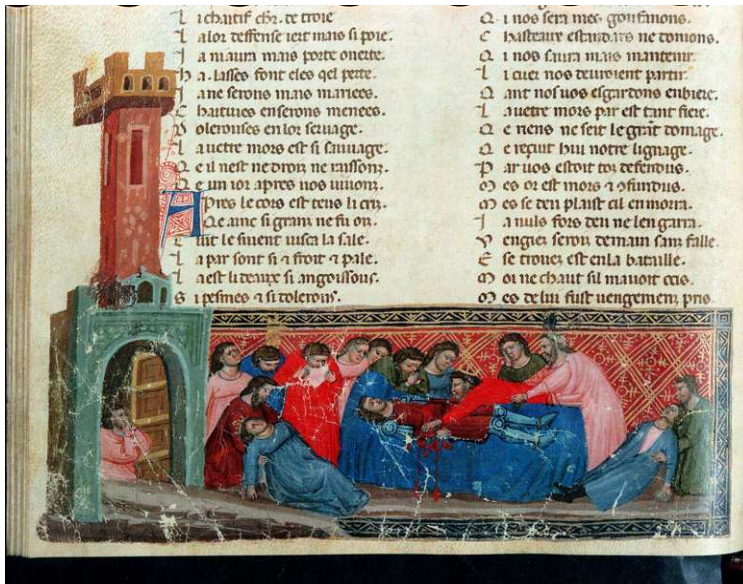 L i chaitif chr. de troie
L alor deffense iert mais si poie.
J a niaura mais porte onerte.
h a. lasses font eles qel perte.
J ane serons mais mariees.
C haitiues enserons menees.
D olerouses en lor seruage.
L a uetre mors est si sauuage.
Q e il nest ne droiz ne raissonz.
Q e un ior apres uos uiuonz.
A Pres le cors est teus li criz.
Qe ainc si granz ne fu oiz.
T uit le siuent iusca la sale.
L a par sont si & froit & pale.
L a est li deaux si angoissous.
S i pesmes & si dolerous.
Q i nos sera mes gonfanons.
C hasteaux estandars ne donions.
Q i nos saura mais mantenir.
L i cuer nos deuroient partir.
Q ant nos uos esgardons enbiere.
L a uetre mors par est tant fiere.
Q e riens ne seit le grant domage.
Q e reçuit hui notre lignage.
P ar uos estoit toz defendus.
M es or est mors & confundus.
M es se deu plaist cil en morra.
J a nuls fors deu ne len garra.
V engiez seroiz demain sanz falle.
E se trouez est en la bataille.
M oi ne chaut sil mauoit ocis.
M es de lui fust uengemenz pris.